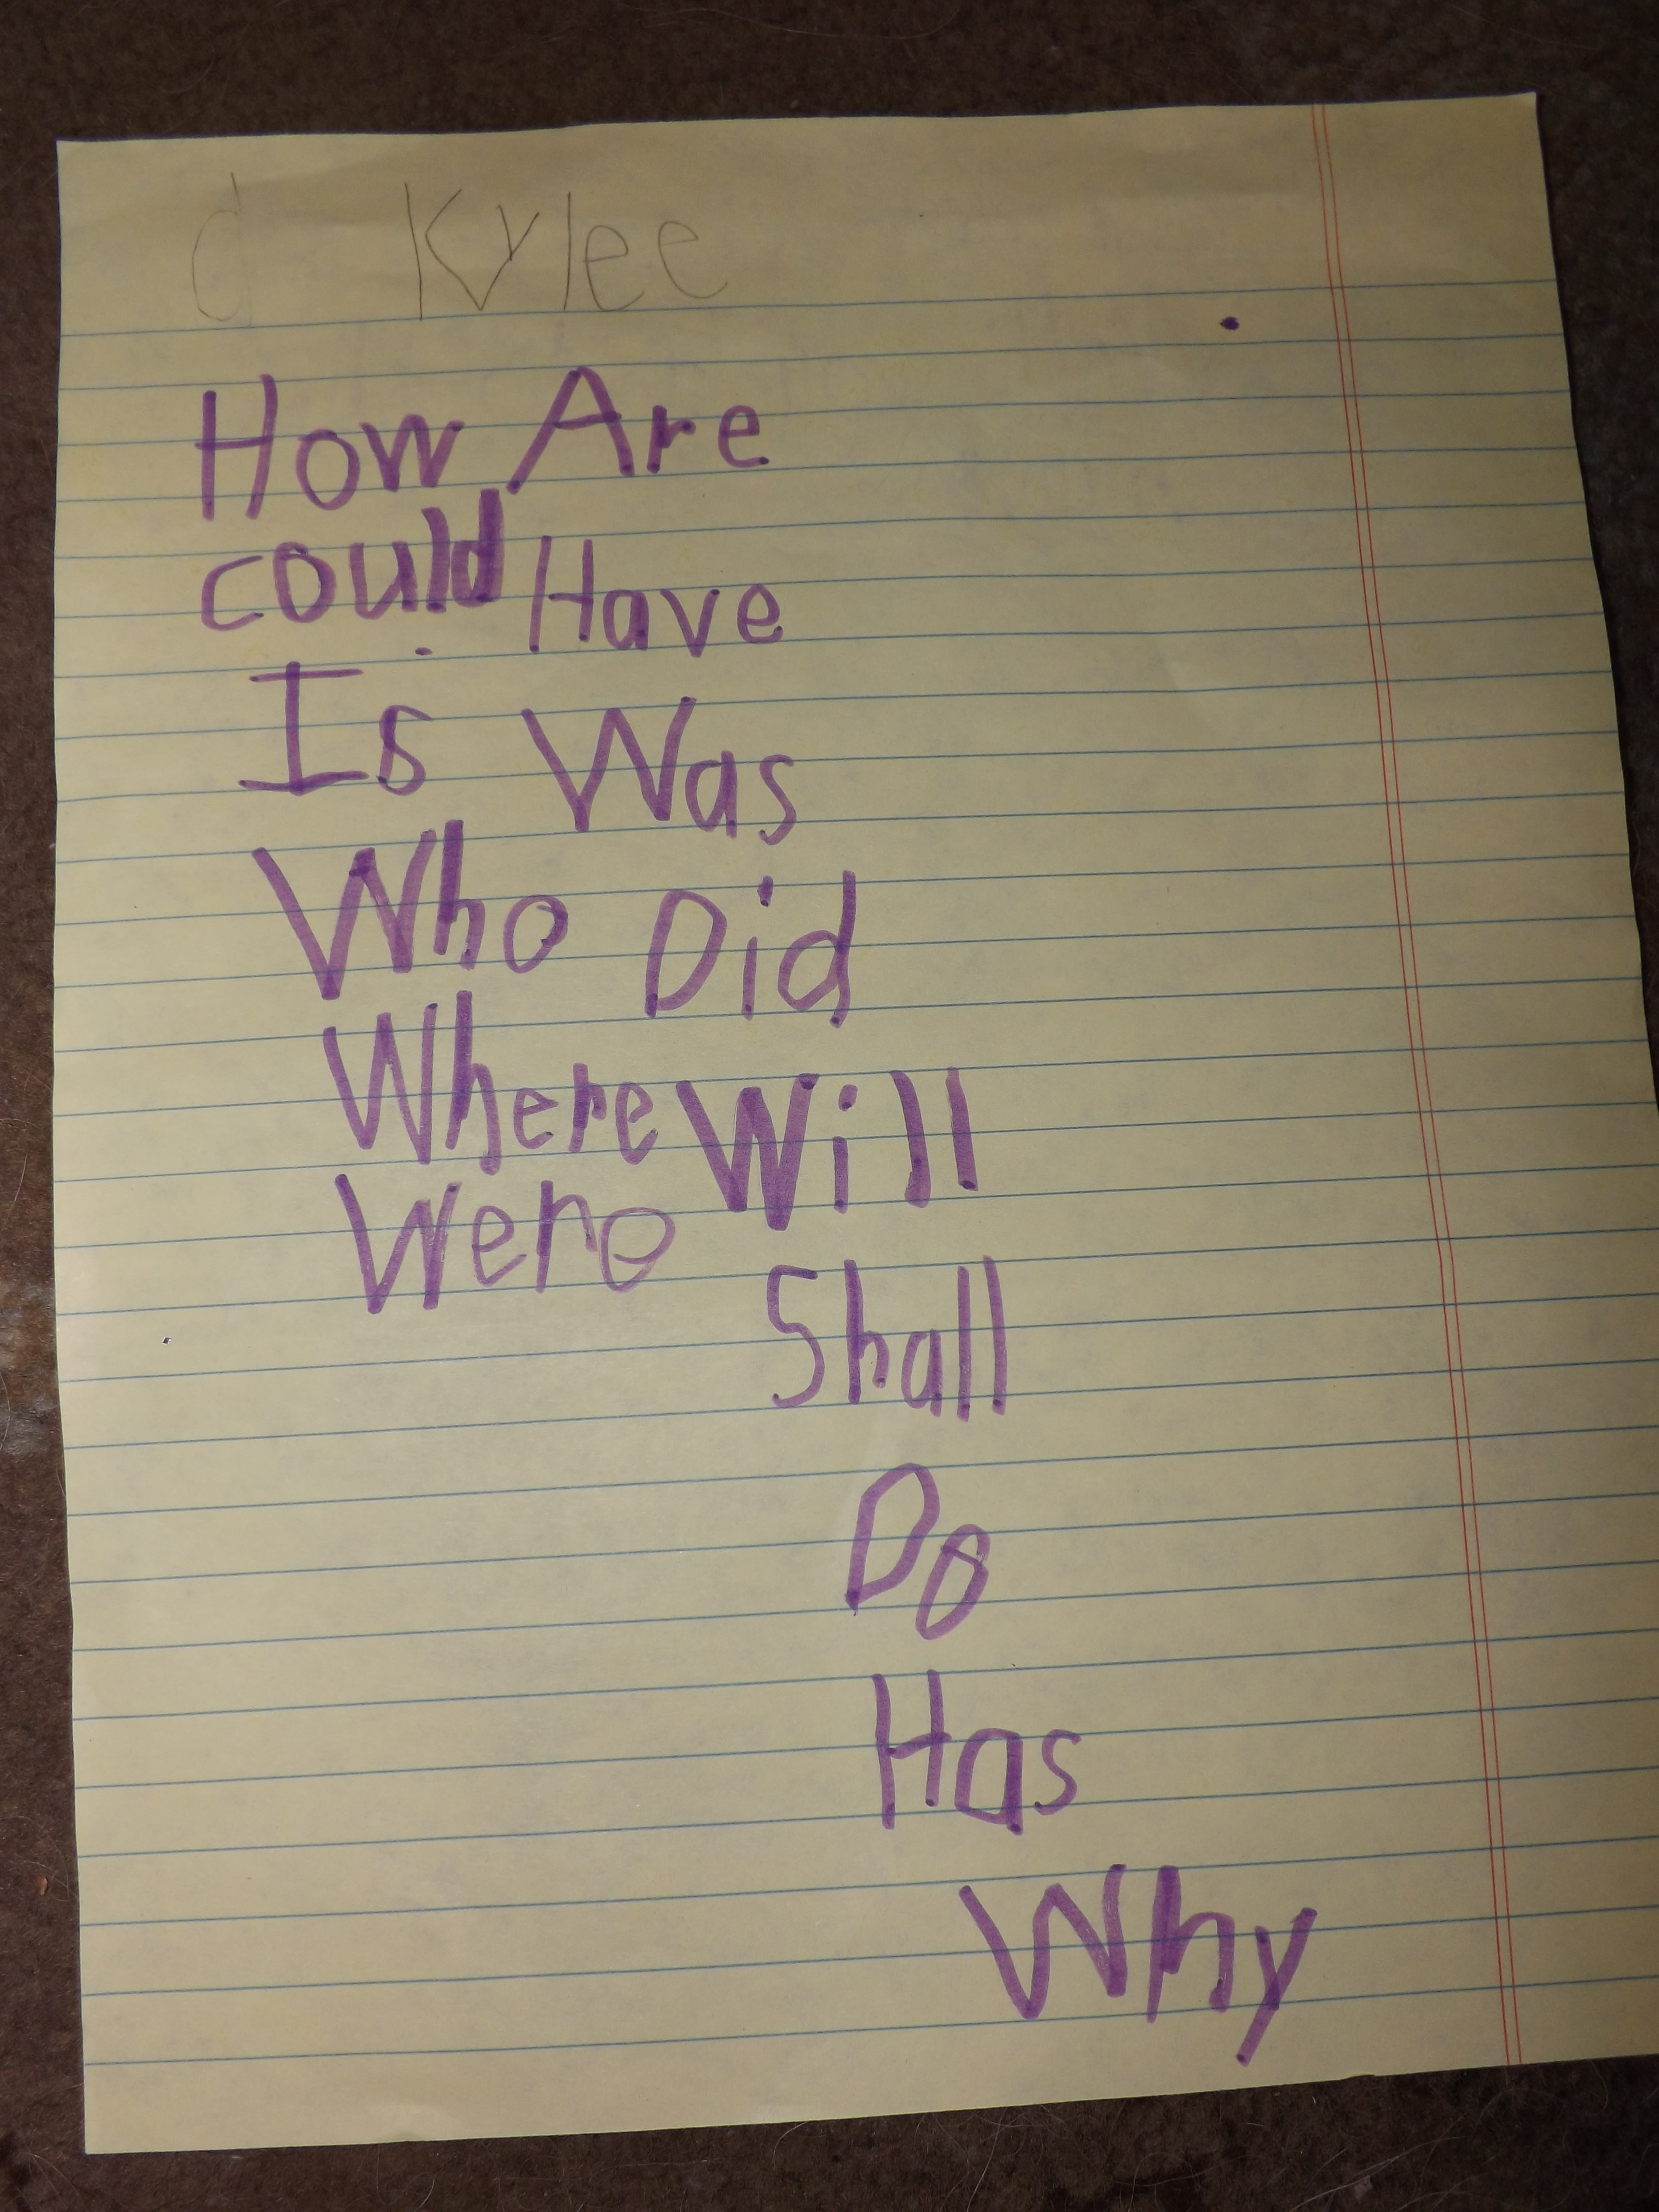 d Kylee
How Are
could Have
Is Was
Who Did
Where Will
Were
Shall
Do
Has
Why